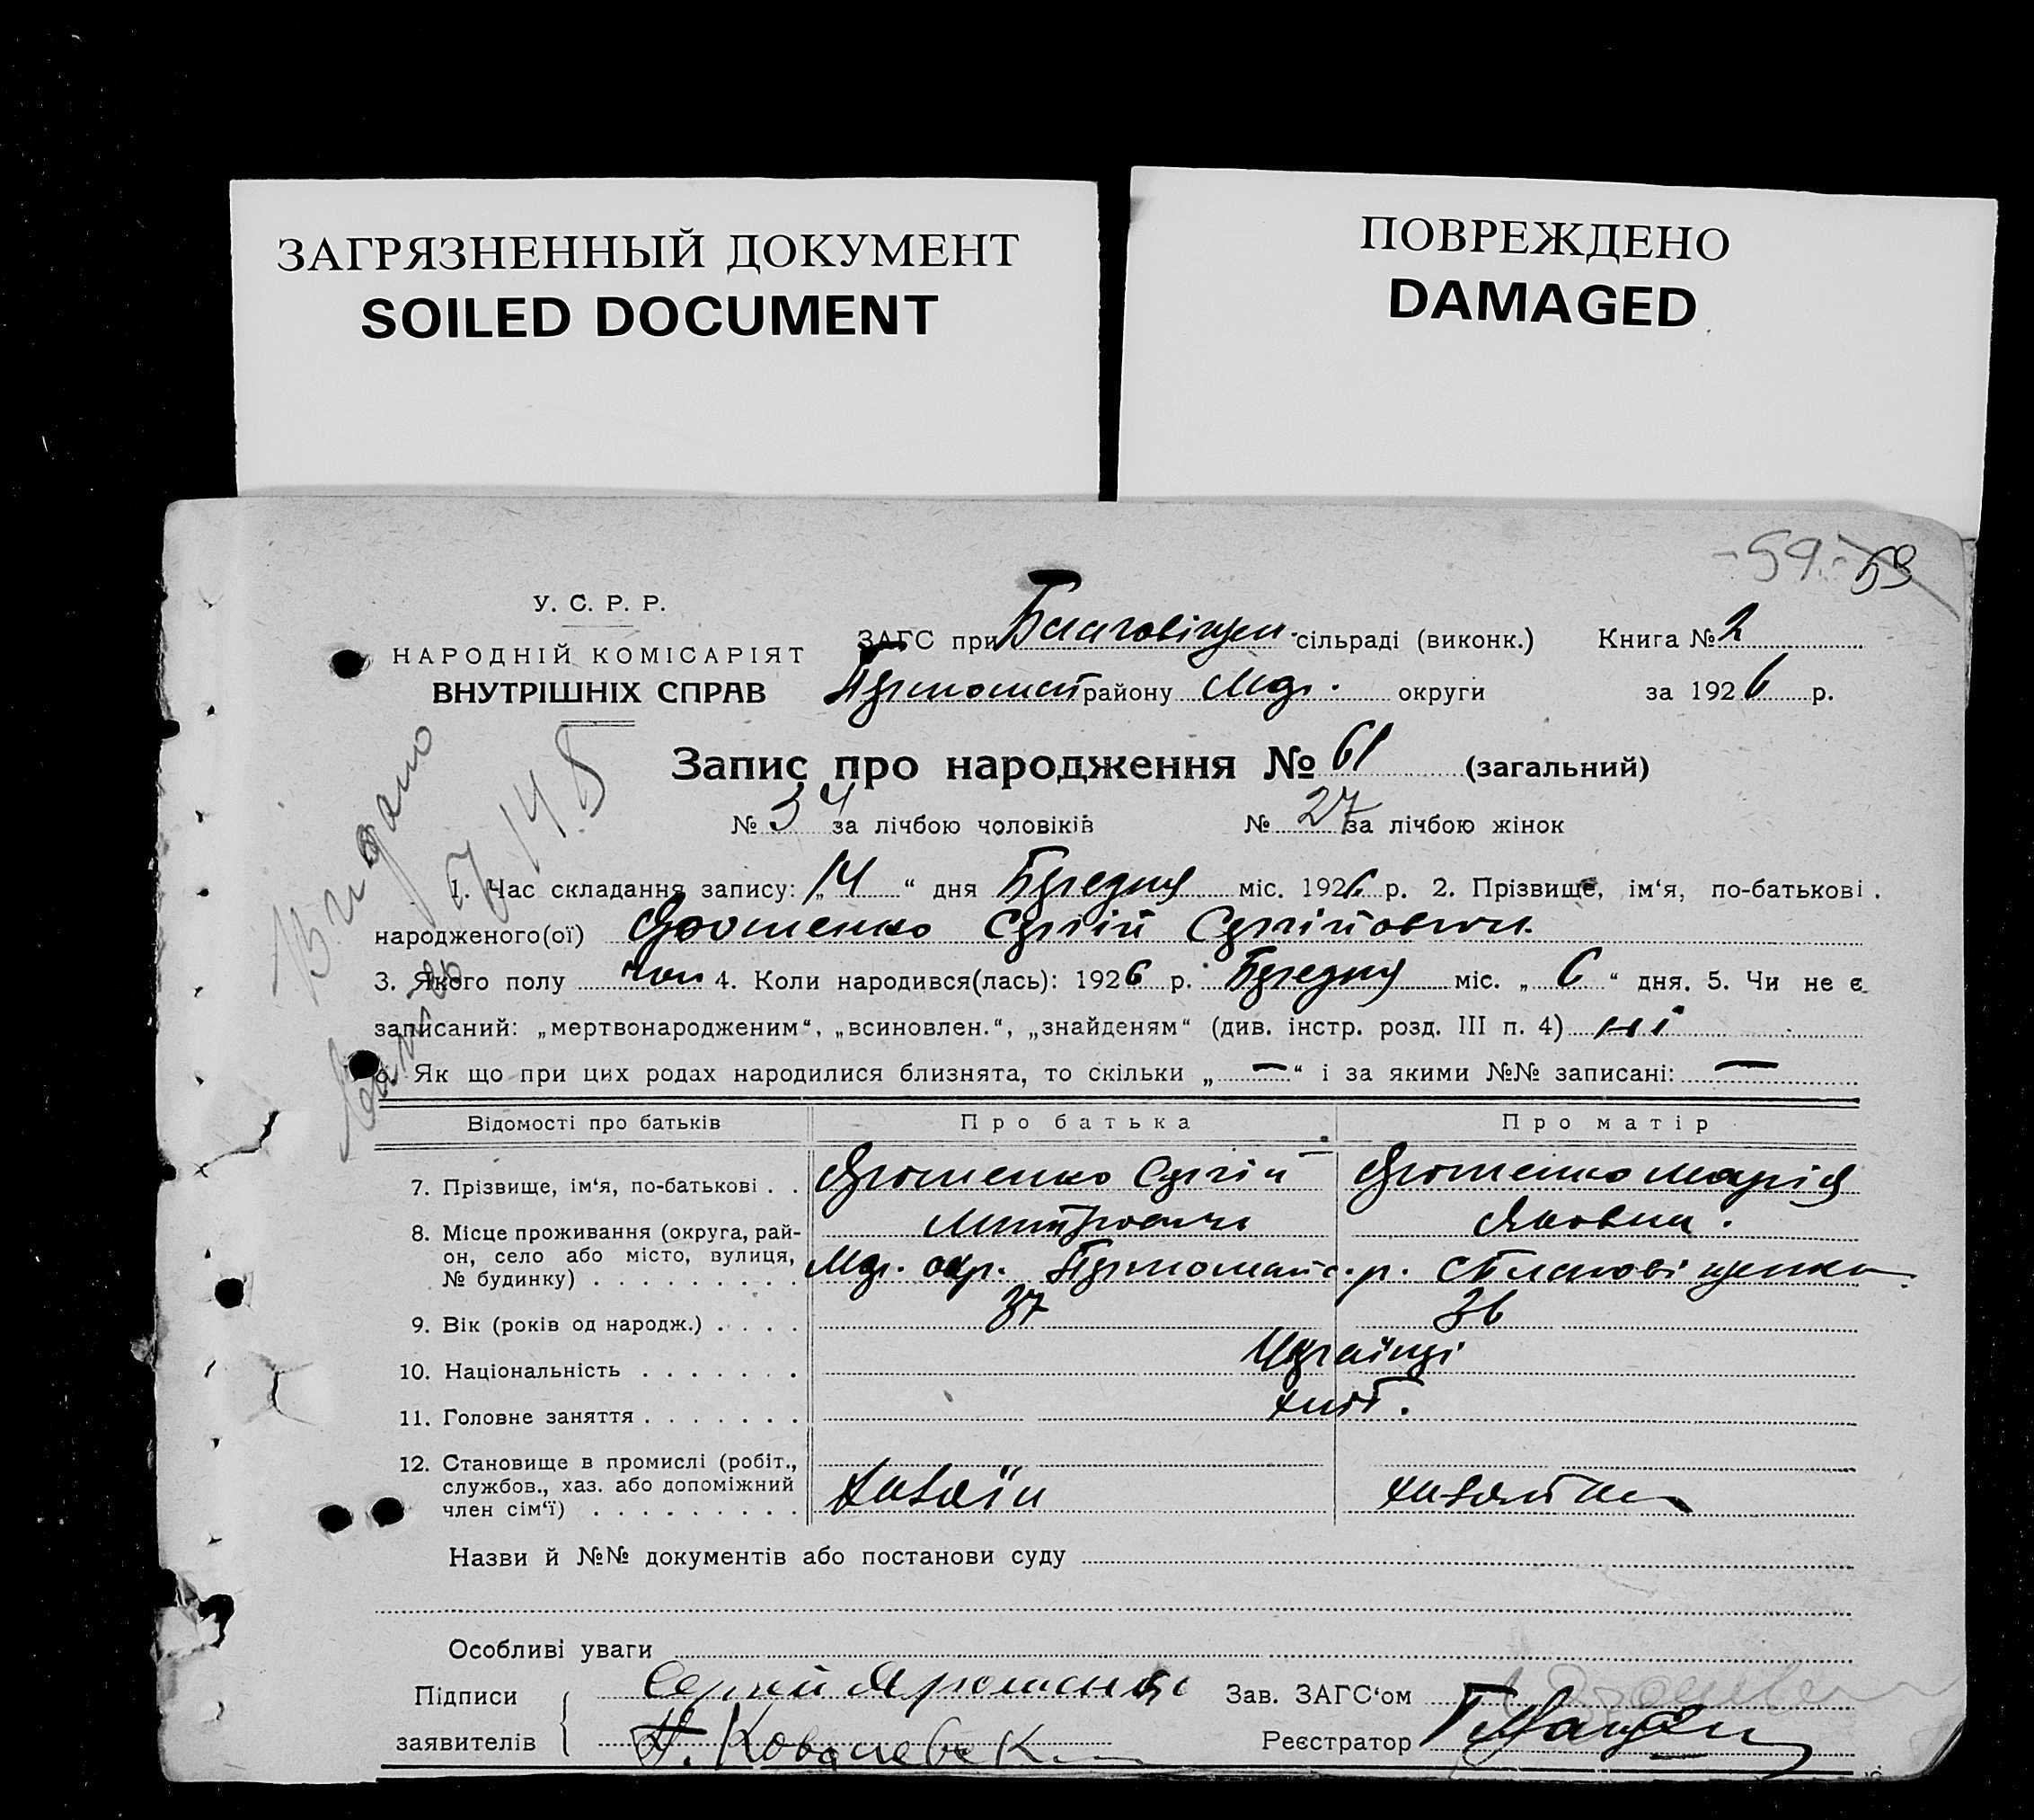 ЗАГРЯЗНЕННЫЙ ДОКУМЕНТ
SOILED DOCUMENT
ПОВРЕЖДЕНО
DAMAGED
-59.- 59
У. С. Р. Р.
НАРОДНІЙ КОМІСАРІЯТ
ВНУТРІШНІХ СПРАВ
ЗАГС при Благовіщен. сільраді (виконк.) Книга № 2
Первомай району Мар. округи за 1926 р.
Запис про народження № 61 (загальний)
№ 34 за лічбою чоловіків № 27 за лічбою жінок
Видано
1. Час складання запису: „14“ дня Березня міс. 1926 р. 2. Прізвище, ім‘я, по-батькові
народженого(ої) Ярошенко Сергій Сергійович
3. Якого полу чол 4. Коли народився(лась): 1926 р. Березня міс. „6“ дня. 5. Чи не є
записаний: „мертвонародженим“, „всиновлен.“, „знайденям“ (див. інстр. розд. III п. 4) ні
6. Як що при цих родах народилися близнята, то скільки „—“ і за якими №№ записані: —
Відомості про батьків Про батька Про матір
7. Прізвище, ім‘я, по-батькові . . Ярошенко Сергій Митрович Ярошенко Марія Яковна.
8. Місце проживання (округа, рай-
он, село або місто, вулиця,
№ будинку) . . . . . . . . . Мар. окр. Первомайс. р. с Благовіщенка
9. Вік (років од народж.) . . . . 37 36
10. Національність . . . . . . . Українці
11. Головне заняття . . . . . . . хліб.
12. Становище в промислі (робіт.,
службов., хаз. або допоміжний
член сім‘ї) . . . . . . . . . хазяїн хазяйка
Назви й №№ документів або постанови суду
Особливі уваги
Підписи Сергій Ярошенко Зав. ЗАГС‘ом
заявителів Ковалевск Реєстратор